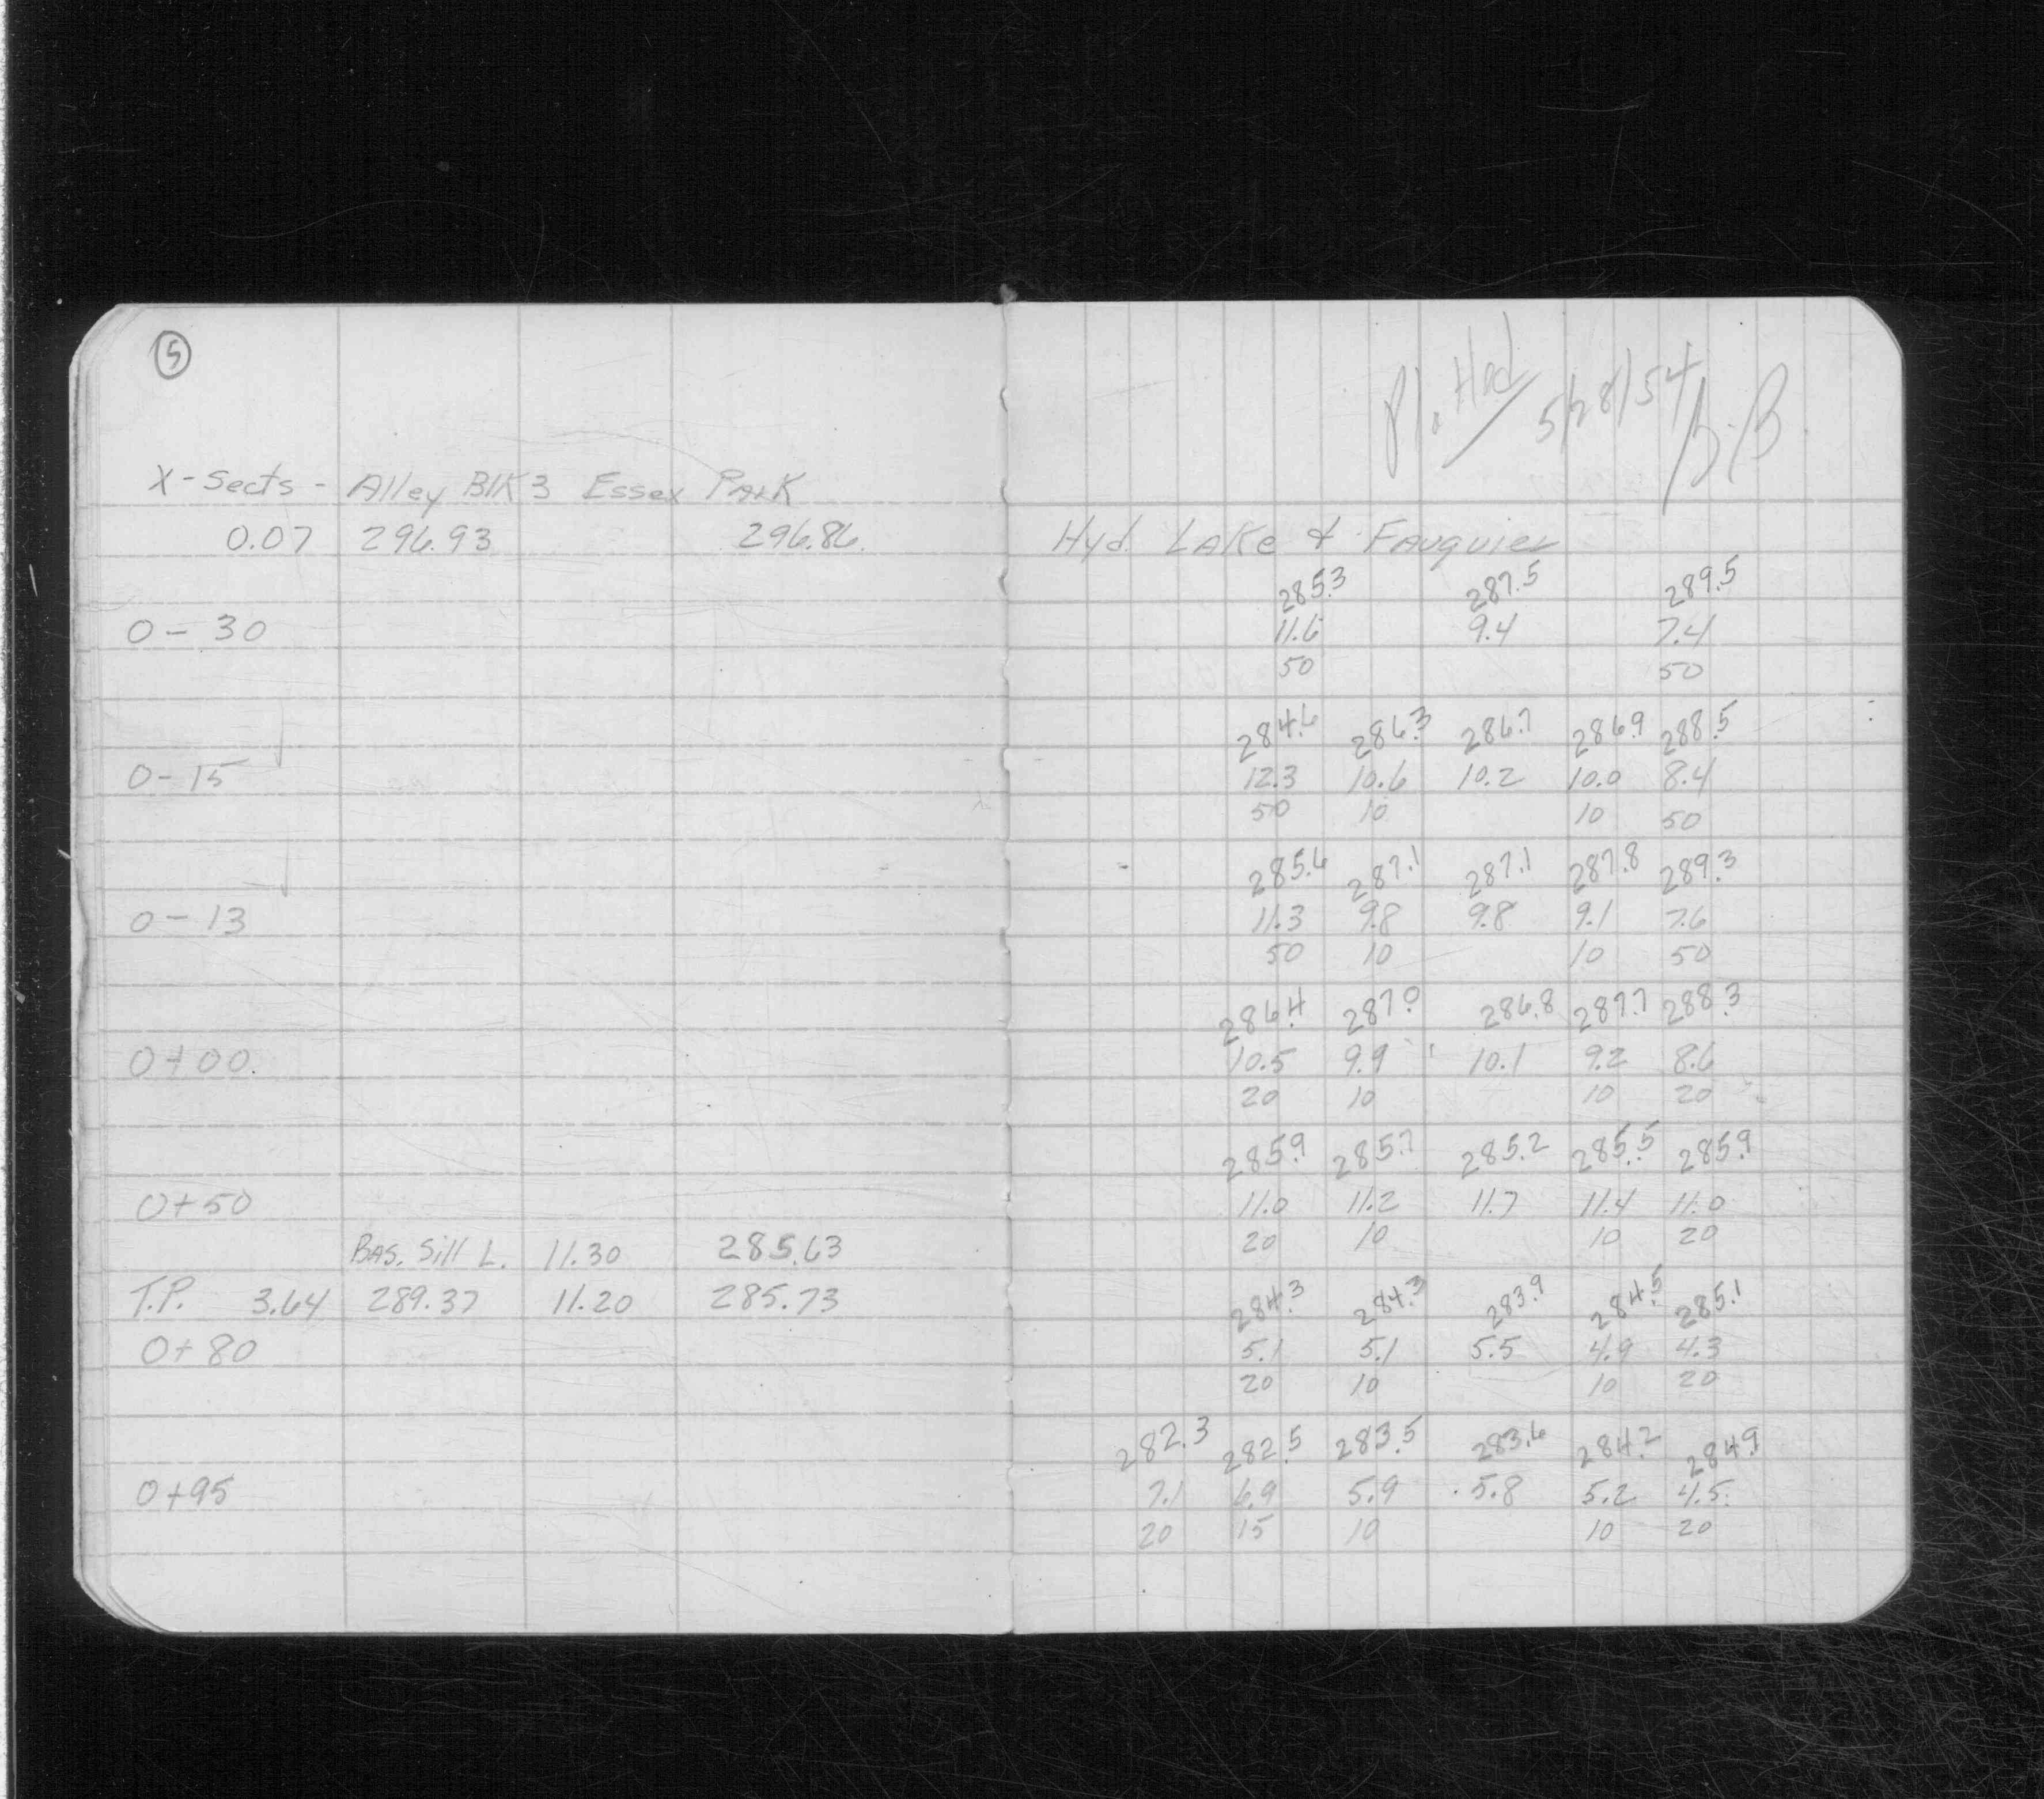 5
X-Sects - Alley Blk 3 Essex Park
0.07 296.93 296.86
0-30
0-15
0-13
0+00.
0+50
Bas. Sill L. 11.30 285.63
T.P. 3.64 289.37 11.20 285.73
0+80
0+95
5/28/54
Hyd. Lake & Fauquier
285.3 287.5 289.5
11.6 9.4 7.4
50 50
284.6 286.3 286.7 286.9 288.5
12.3 10.6 10.2 10.0 8.4
50 10 10 50
285.6 287.1 287.1 287.8 289.3
11.3 9.8 9.8 9.1 7.6
50 10 10 50
286.4 287.0 286.8 287.7 288.3
10.5 9.9 10.1 9.2 8.6
20 10 10 20
285.9 285.7 285.2 285.5 285.9
11.0 11.2 11.7 11.4 11.0
20 10 10 20
284.3 284.3 283.9 284.5 285.1
5.1 5.1 5.5 4.9 4.3
20 10 10 20
282.3 282.5 283.5 283.6 284.2 284.9
7.1 6.9 5.9 5.8 5.2 4.5
20 15 10 10 20